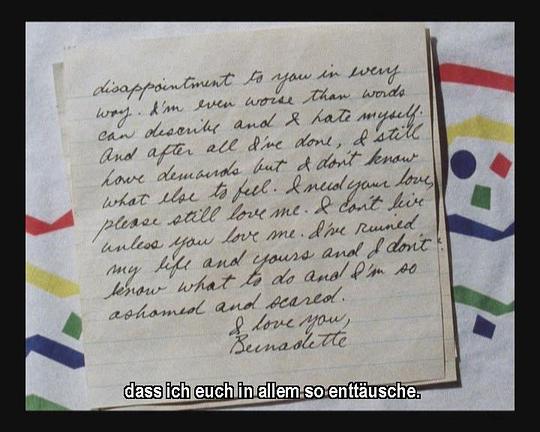 disappointment to you in every
way. I'm even worse than words
can describe and I hate myself.
And after all I've done, I still
have demands but I don't know
what else to feel. I need your love,
please still love me. I can't live
unless you love me. I've ruined
my life and yours and I don't
know what to do and I'm so
ashamed and scared.
I love you,
Bernadette
dass ich euch in allem so enttäusche.